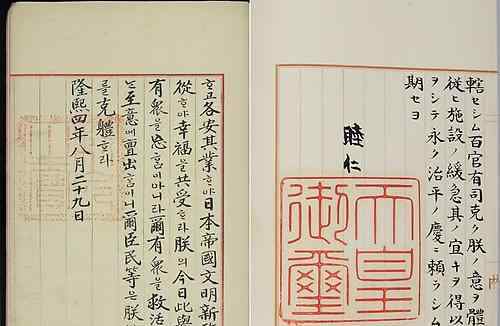 轄セシム百官有司克ク朕ノ意ヲ體
從ヒ施設ノ緩急其ノ宜キヲ得以
ヲシテ永ク治平ノ慶ニ頼ラシム
期セヨ
睦仁
天皇
御璽
ᄒᆞ고各安其業ᄒᆞ야日本帝國文明新
從ᄒᆞ야幸福을共受ᄒᆞ라朕의今日此
有衆을忘ᄒᆞᆷ이아니라爾有衆을救活
ᄂᆞᆫ至意에亶出ᄒᆞᆷ이니爾臣民等은朕
를克體ᄒᆞ라
隆熙四年八月二十九日